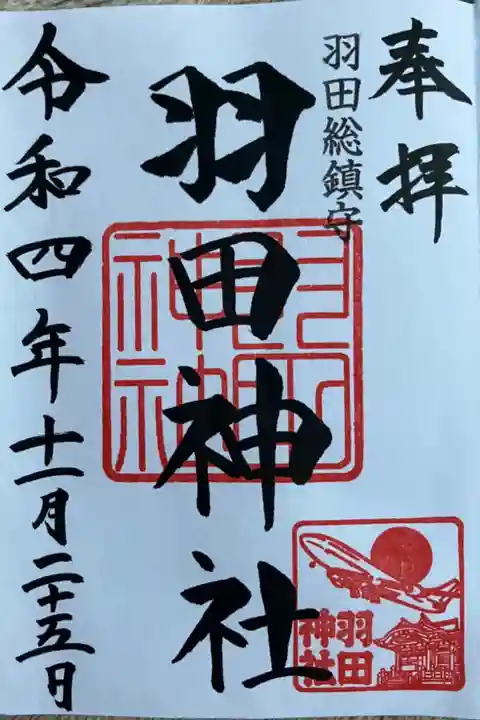 奉拝
羽田総鎮守
羽田神社
羽田神社
羽田
神社
令和四年十一月二十五日